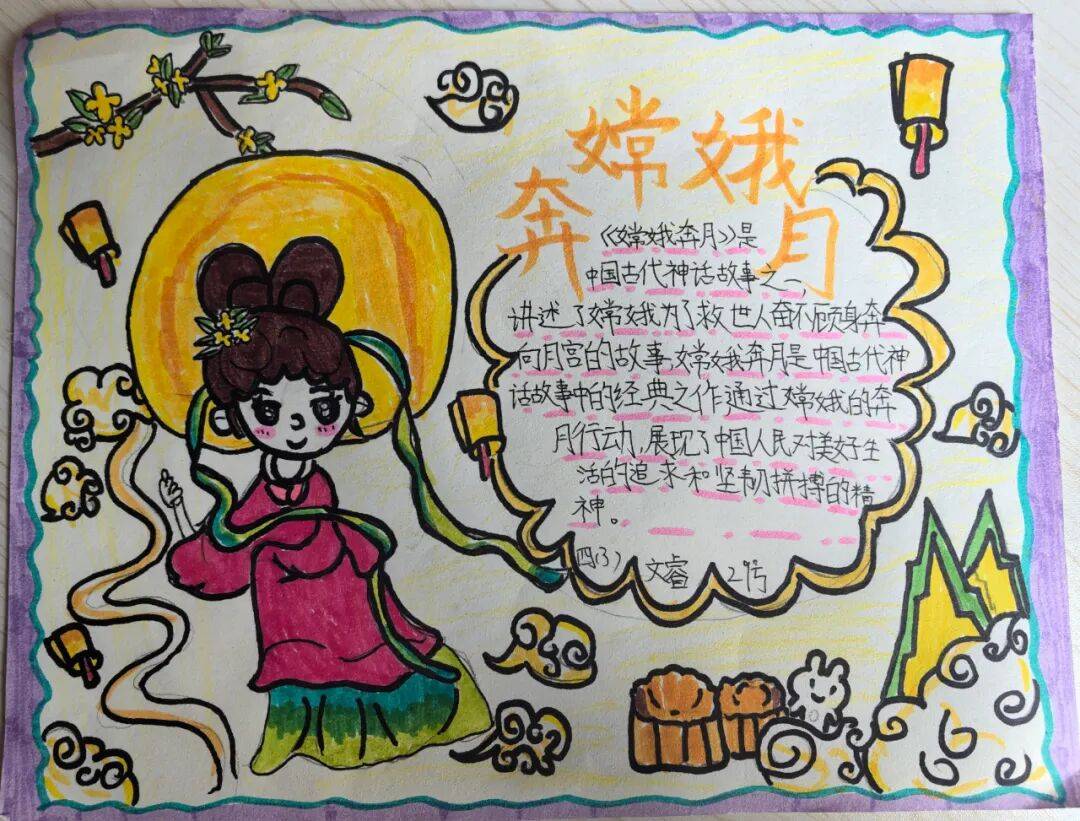 嫦娥奔月
《嫦娥奔月》是
中国古代神话故事之一,
讲述了嫦娥为了救世人奋不顾身奔
向月宫的故事,嫦娥奔月是中国古代神
话故事中的经典之作通过嫦娥的奔
月行动,展现了中国人民对美好生
活的追求和坚韧拼搏的精
神。
四(3) 文睿 2号